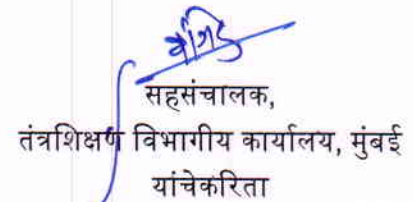 सहसंचालक,
तंत्रशिक्षण विभागीय कार्यालय, मुंबई
यांचेकरिता